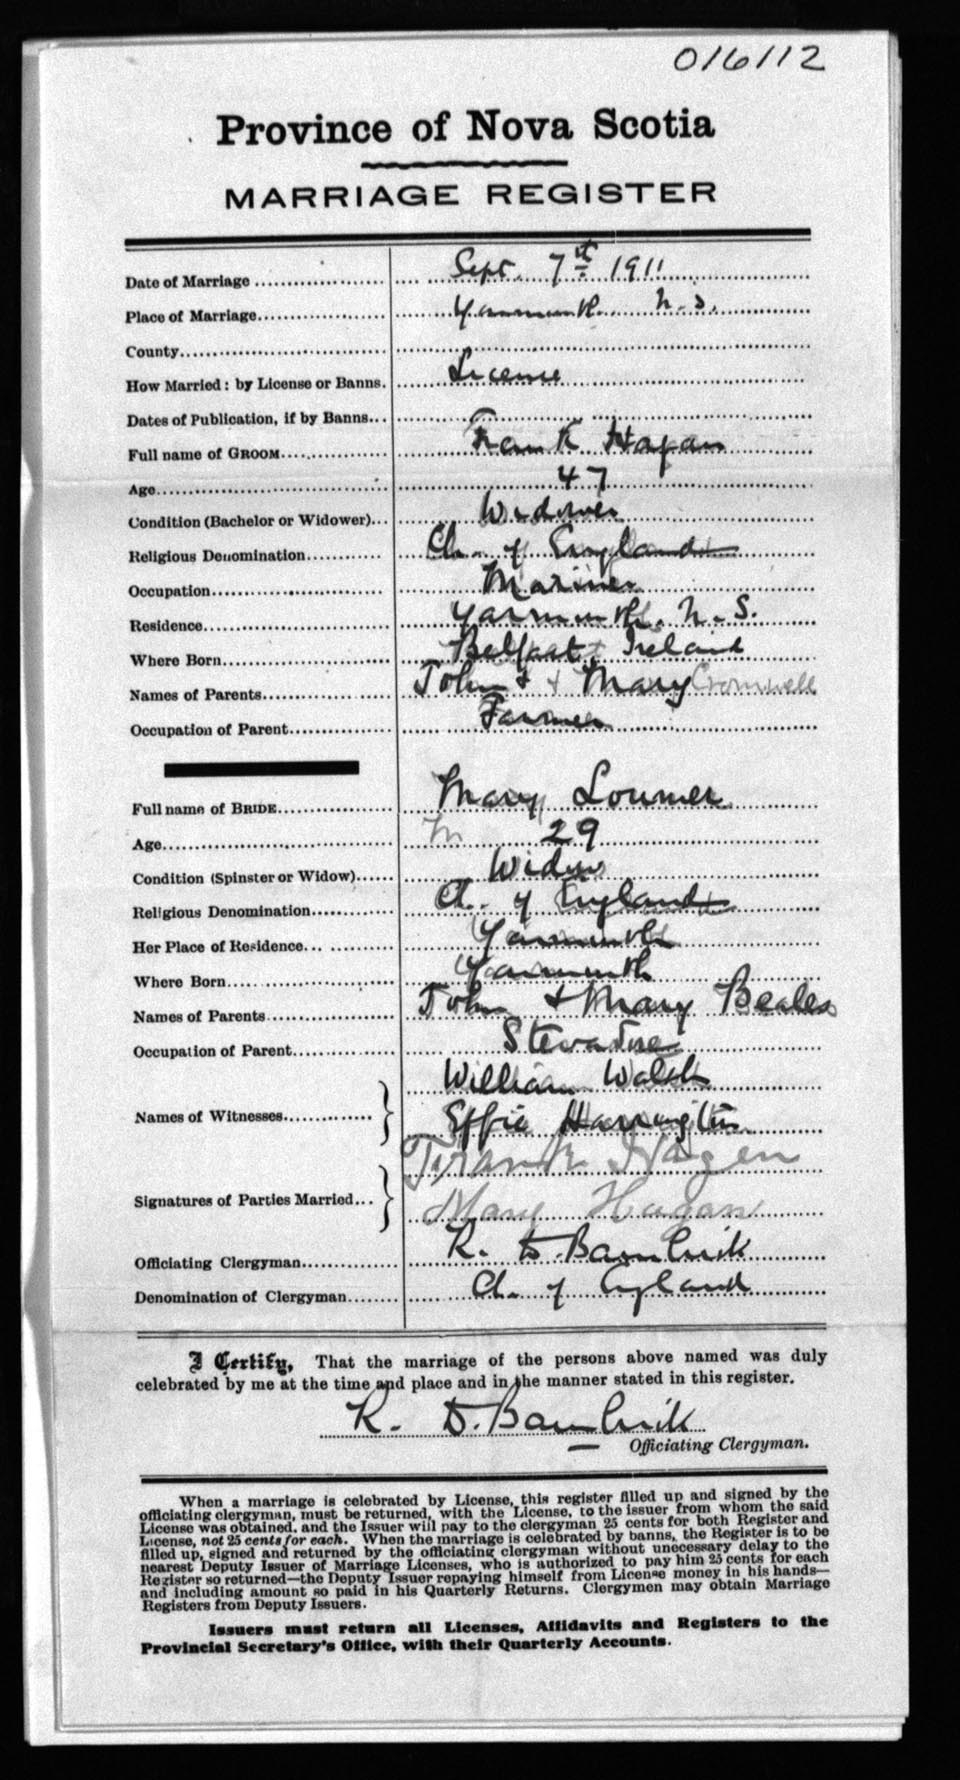 016112
Province of Nova Scotia
MARRIAGE REGISTER
Date of Marriage Sept. 7th 1911
Place of Marriage Yarmouth N.S.
County
How Married: by License or Banns. License
Dates of Publication, if by Banns
Full name of GROOM Frank Hagan
Age 47
Condition (Bachelor or Widower) Widower
Religious Denomination Ch. of England
Occupation Mariner
Residence Yarmouth. N.S.
Where Born Belfast Ireland
Names of Parents John & Mary Cromwell
Occupation of Parent Farmer
Full name of BRIDE Mary Loumer
Age 29
Condition (Spinster or Widow) Widow
Religious Denomination Ch. of England
Her Place of Residence Yarmouth
Where Born Yarmouth
Names of Parents John & Mary Beales
Occupation of Parent
William Walsh
Names of Witnesses Effie Harrington
Frank Hagen
Signatures of Parties Married
Mary Hagan
Officiating Clergyman R. D. Bambrick
Denomination of Clergyman Ch. of England
I Certify, That the marriage of the persons above named was duly
celebrated by me at the time and place and in the manner stated in this register.
R. D. Bambrick
Officiating Clergyman.
When a marriage is celebrated by License, this register filled up and signed by the
officiating clergyman, must be returned, with the License, to the issuer from whom the said
License was obtained, and the Issuer will pay to the clergyman 25 cents for both Register and
License, not 25 cents for each. When the marriage is celebrated by banns, the Register is to be
filled up, signed and returned by the officiating clergyman without unnecessary delay to the
nearest Deputy Issuer of Marriage Licenses, who is authorized to pay him 25 cents for each
Register so returned—the Deputy Issuer repaying himself from License money in his hands—
and including amount so paid in his Quarterly Returns. Clergymen may obtain Marriage
Registers from Deputy Issuers.
Issuers must return all Licenses, Affidavits and Registers to the
Provincial Secretary's Office, with their Quarterly Accounts.